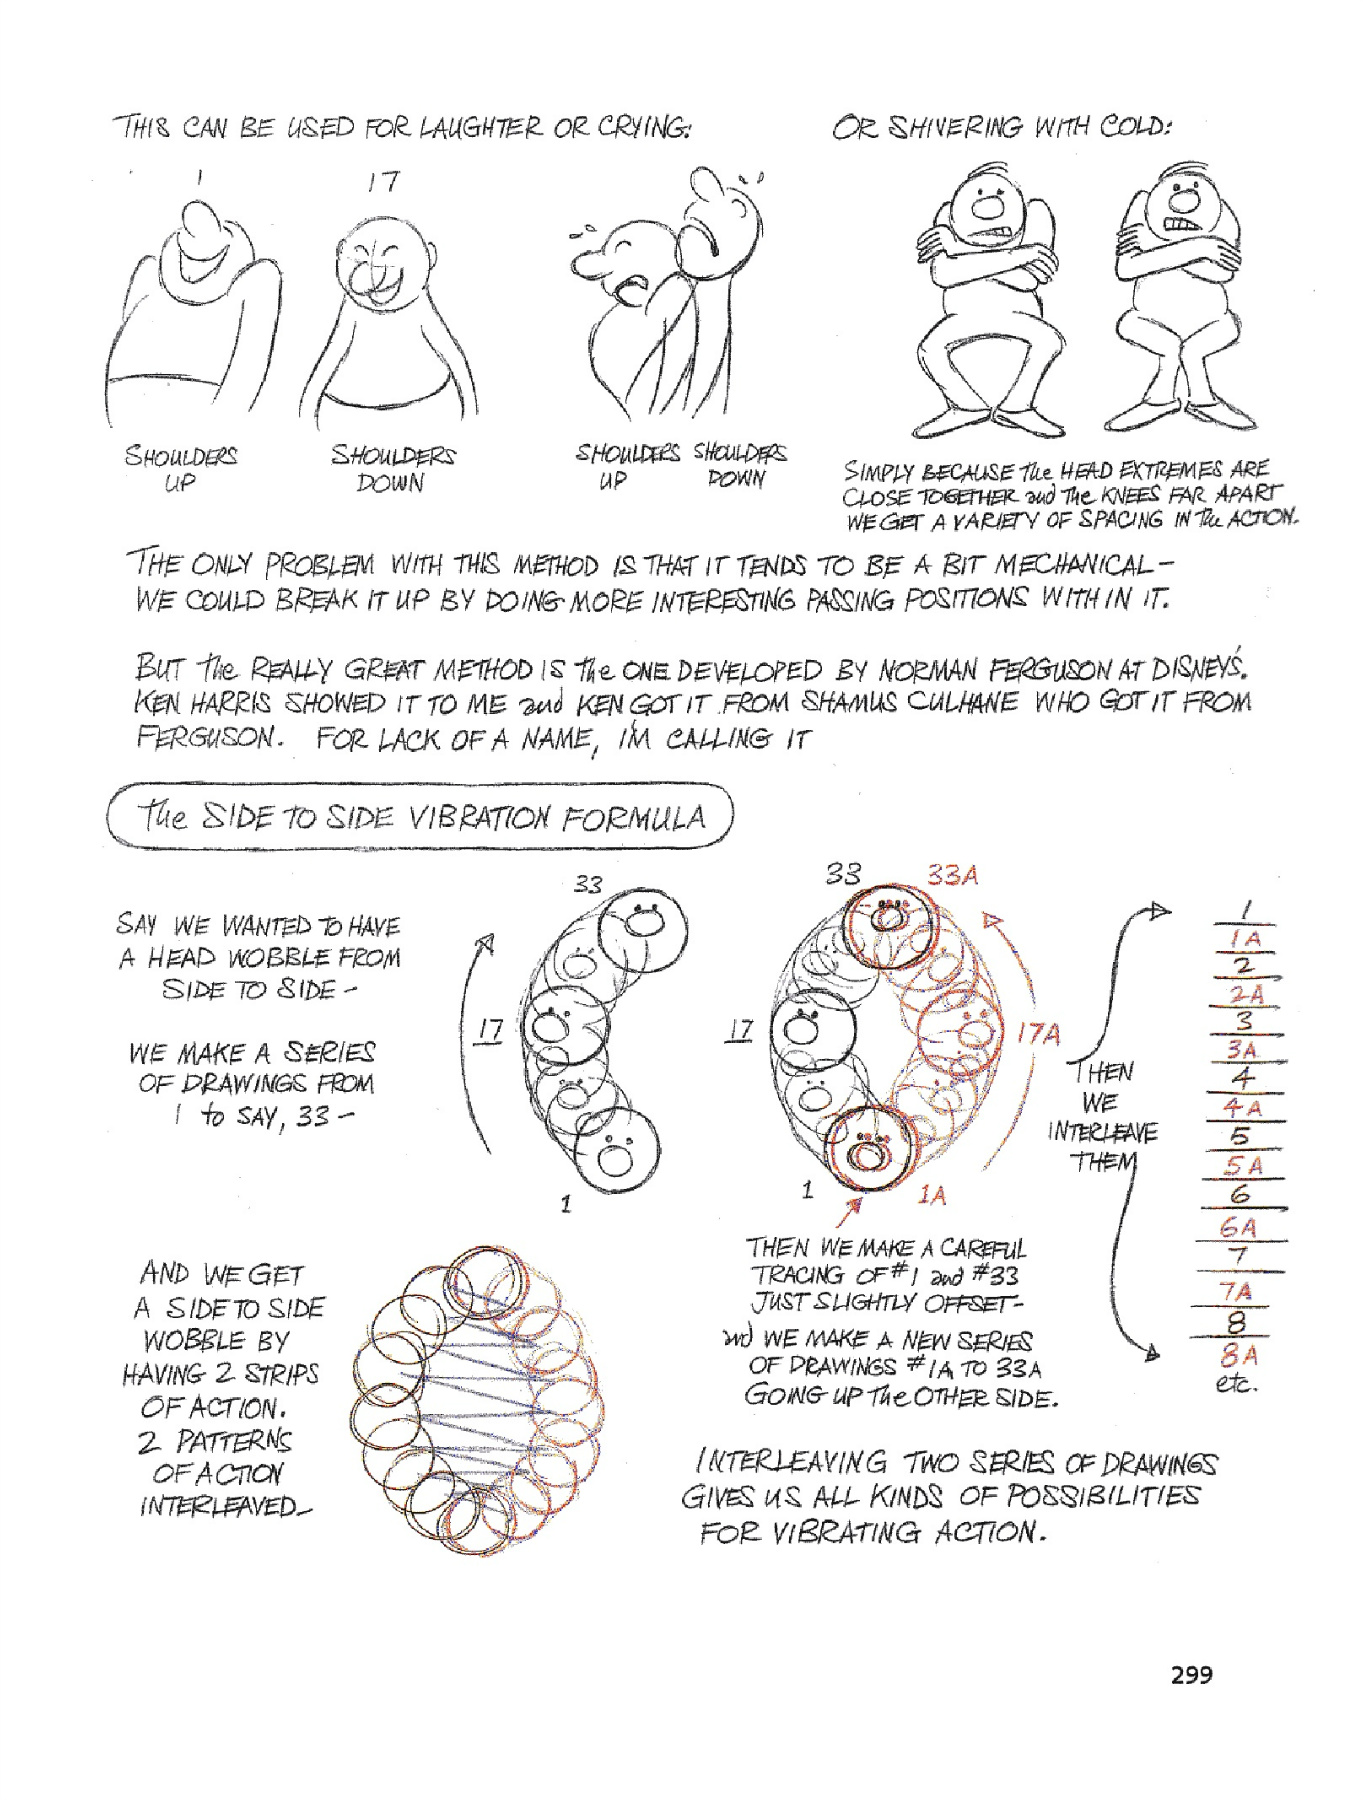 THIS CAN BE USED FOR LAUGHTER OR CRYING:
1
17
SHOULDERS
UP
SHOULDERS
DOWN
SHOULDERS
UP
SHOULDERS
DOWN
OR SHIVERING WITH COLD:
SIMPLY BECAUSE The HEAD EXTREMES ARE
CLOSE TOGETHER and The KNEES FAR APART
WE GET A VARIETY OF SPACING IN The ACTION.
THE ONLY PROBLEM WITH THIS METHOD IS THAT IT TENDS TO BE A BIT MECHANICAL –
WE COULD BREAK IT UP BY DOING MORE INTERESTING PASSING POSITIONS WITHIN IT.
BUT The REALLY GREAT METHOD IS The ONE DEVELOPED BY NORMAN FERGUSON AT DISNEY'S.
KEN HARRIS SHOWED IT TO ME and KEN GOT IT FROM SHAMUS CULHANE WHO GOT IT FROM
FERGUSON. FOR LACK OF A NAME, I'M CALLING IT
The SIDE TO SIDE VIBRATION FORMULA
SAY WE WANTED TO HAVE
A HEAD WOBBLE FROM
SIDE TO SIDE –
WE MAKE A SERIES
OF DRAWINGS FROM
1 to SAY, 33 –
33
17
1
33
33A
17
17A
1
1A
THEN
WE
INTERLEAVE
THEM
1
1A
2
2A
3
3A
4
4A
5
5A
6
6A
7
7A
8
8A
etc.
THEN WE MAKE A CAREFUL
TRACING OF #1 and #33
JUST SLIGHTLY OFFSET –
and WE MAKE A NEW SERIES
OF DRAWINGS #1A TO 33A
GOING UP The OTHER SIDE.
AND WE GET
A SIDE TO SIDE
WOBBLE BY
HAVING 2 STRIPS
OF ACTION.
2 PATTERNS
OF ACTION
INTERLEAVED –
INTERLEAVING TWO SERIES OF DRAWINGS
GIVES US ALL KINDS OF POSSIBILITIES
FOR VIBRATING ACTION.
299